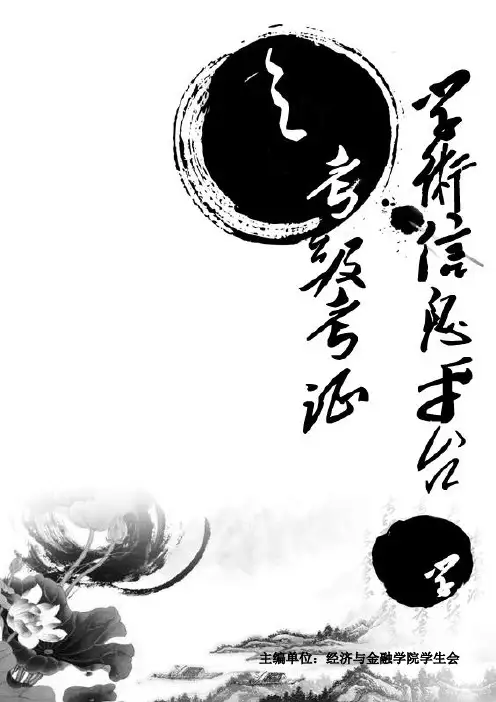 学術信息平台
之
考级考证
学
主编单位：经济与金融学院学生会